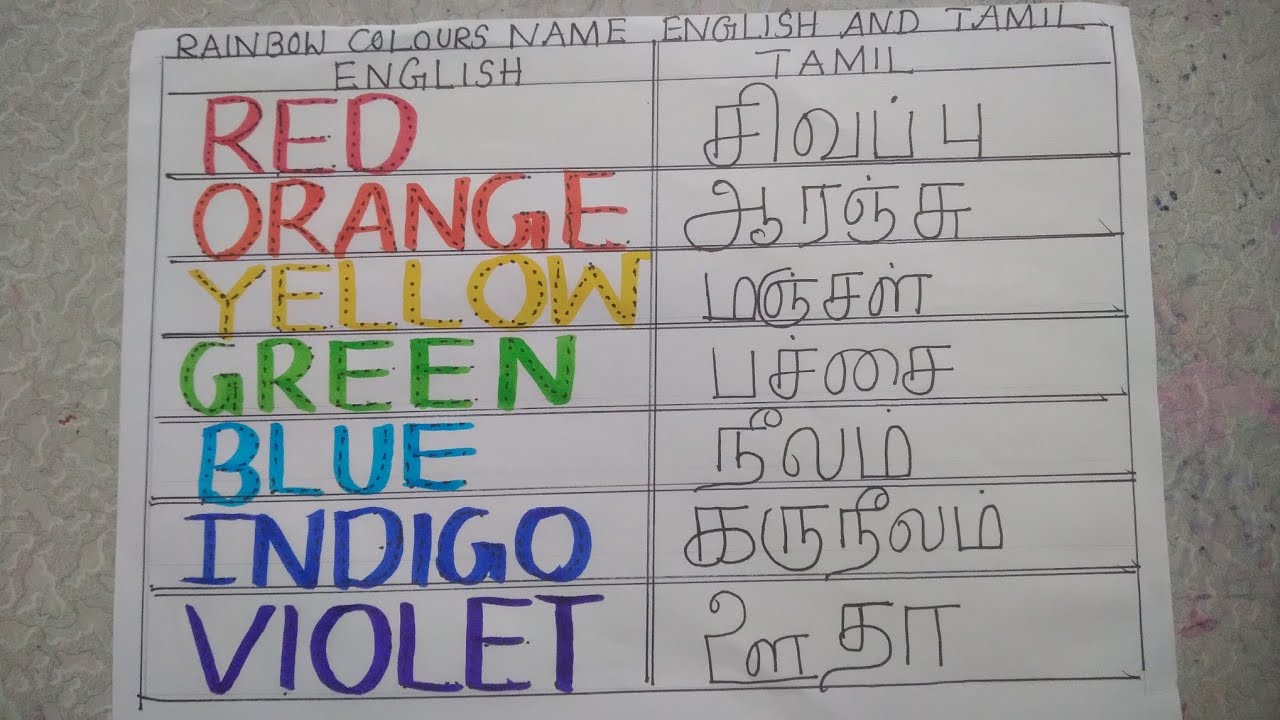 RAINBOW COLOURS NAME ENGLISH AND TAMIL
ENGLISH TAMIL
RED சிவப்பு
ORANGE ஆரஞ்சு
YELLOW மஞ்சள்
GREEN பச்சை
BLUE நீலம்
INDIGO கருநீலம்
VIOLET ஊதா